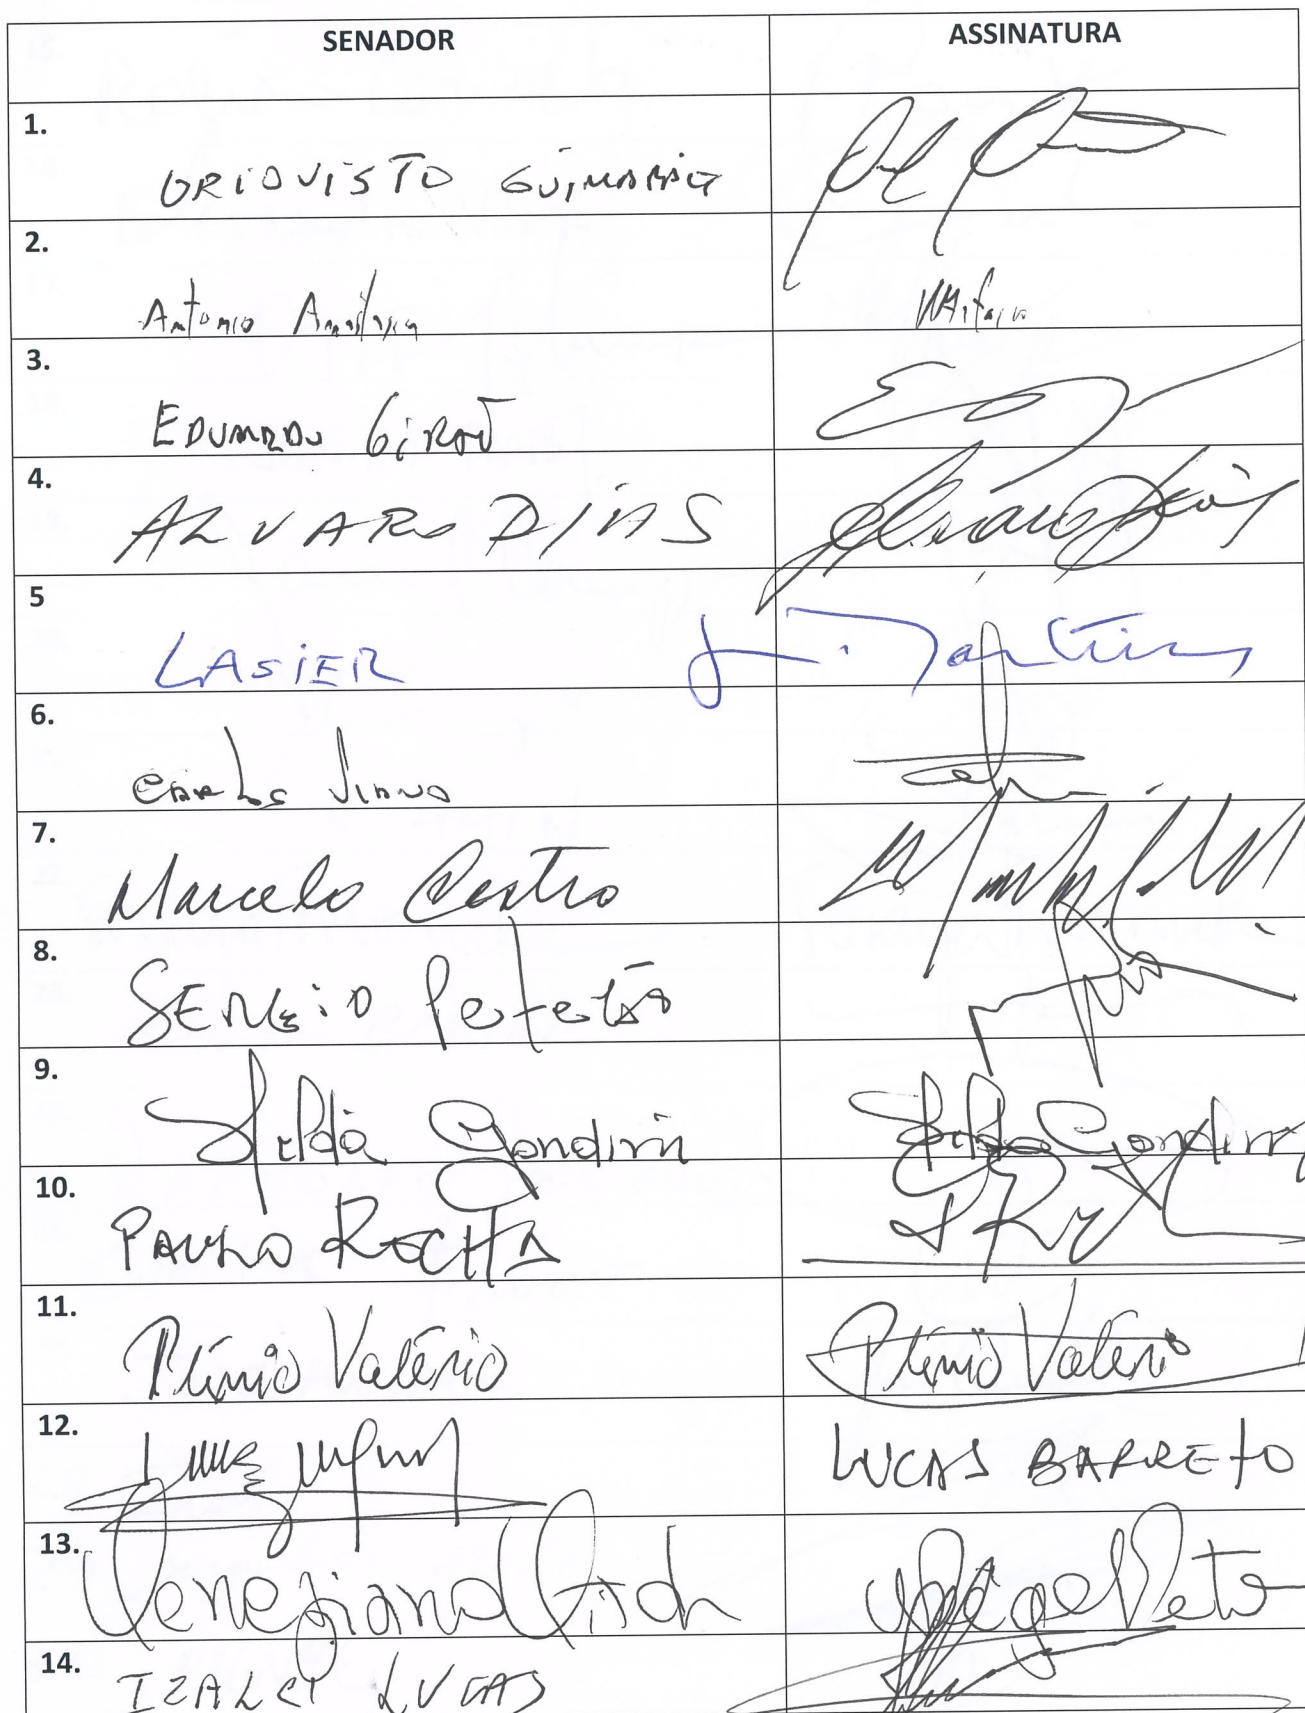 SENADOR ASSINATURA
1.
ORIOVISTO GUIMARÃES
2.
Antonio Anastasia
3.
EDUARDO GIRÃO
4.
ALVARO DIAS Alvaro Dias
5
LASIER L. Martins
6.
CARLOS VIANA
7.
Marcelo Castro
8.
SERGIO Petecão
9.
Nilda Gondim Nilda Gondim
10.
PAULO ROCHA
11.
Plínio Valério Plínio Valério
12.
LUCAS BARRETO
13.
Veneziano
14.
IZALCI LUCAS